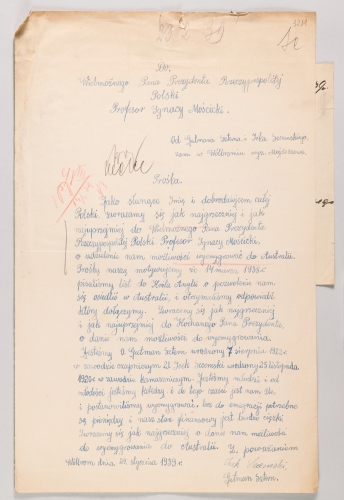 Do:
Wielmożnego Pana Prezydenta Rzeczypospolitej
Polski
Profesor Ignacy Mościcki.
Od Gutmana Sztern i Icka
zam w Wolbromiu
Prośba.
Jako słynące Imię i dobrodziejem całej
Polski, zwracamy się jak najgoręcej i jak
najuprzejmiej do Wielmożnego Pana Prezydenta
Rzeczypospolitej Polski Profesor Ignacy Mościcki,
o udzielenie nam możliwości wyemigrować do Australii.
Prośbę naszą motywujemy iż 14 marca 1938 r.
pisaliśmy list do Króla Anglii o pozwolenie nam
się osiedlić w Australii, i otrzymaliśmy odpowiedź
który dołączymy. Zwracamy się jak najgoręcej
i jak najuprzejmiej do Kochanego Pana Prezydenta,
o danie nam możliwości do wyemigrowania
Jesteśmy I. Gutman Sztern urodzony 7 sierpnia 1922 r.
w zawodzie czapniczym 2) Icek urodzony 25 listopada
w zawodzie kamaszniczym. Jesteśmy młodzi i od
młodości jesteśmy i do tego czasu jest nam źle
i postanowiliśmy wyemigrować, lecz do emigracji potrzebno
się pieniędzy i nasz stan finansowy jest bardzo ciężki
Zwracamy się jak najgoręcej o danie nam możliwości
do wyemigrowania do Australii. Z poważaniem
Wolbrom dnia stycznia 1939 r. Icek
Gutman Sztern.